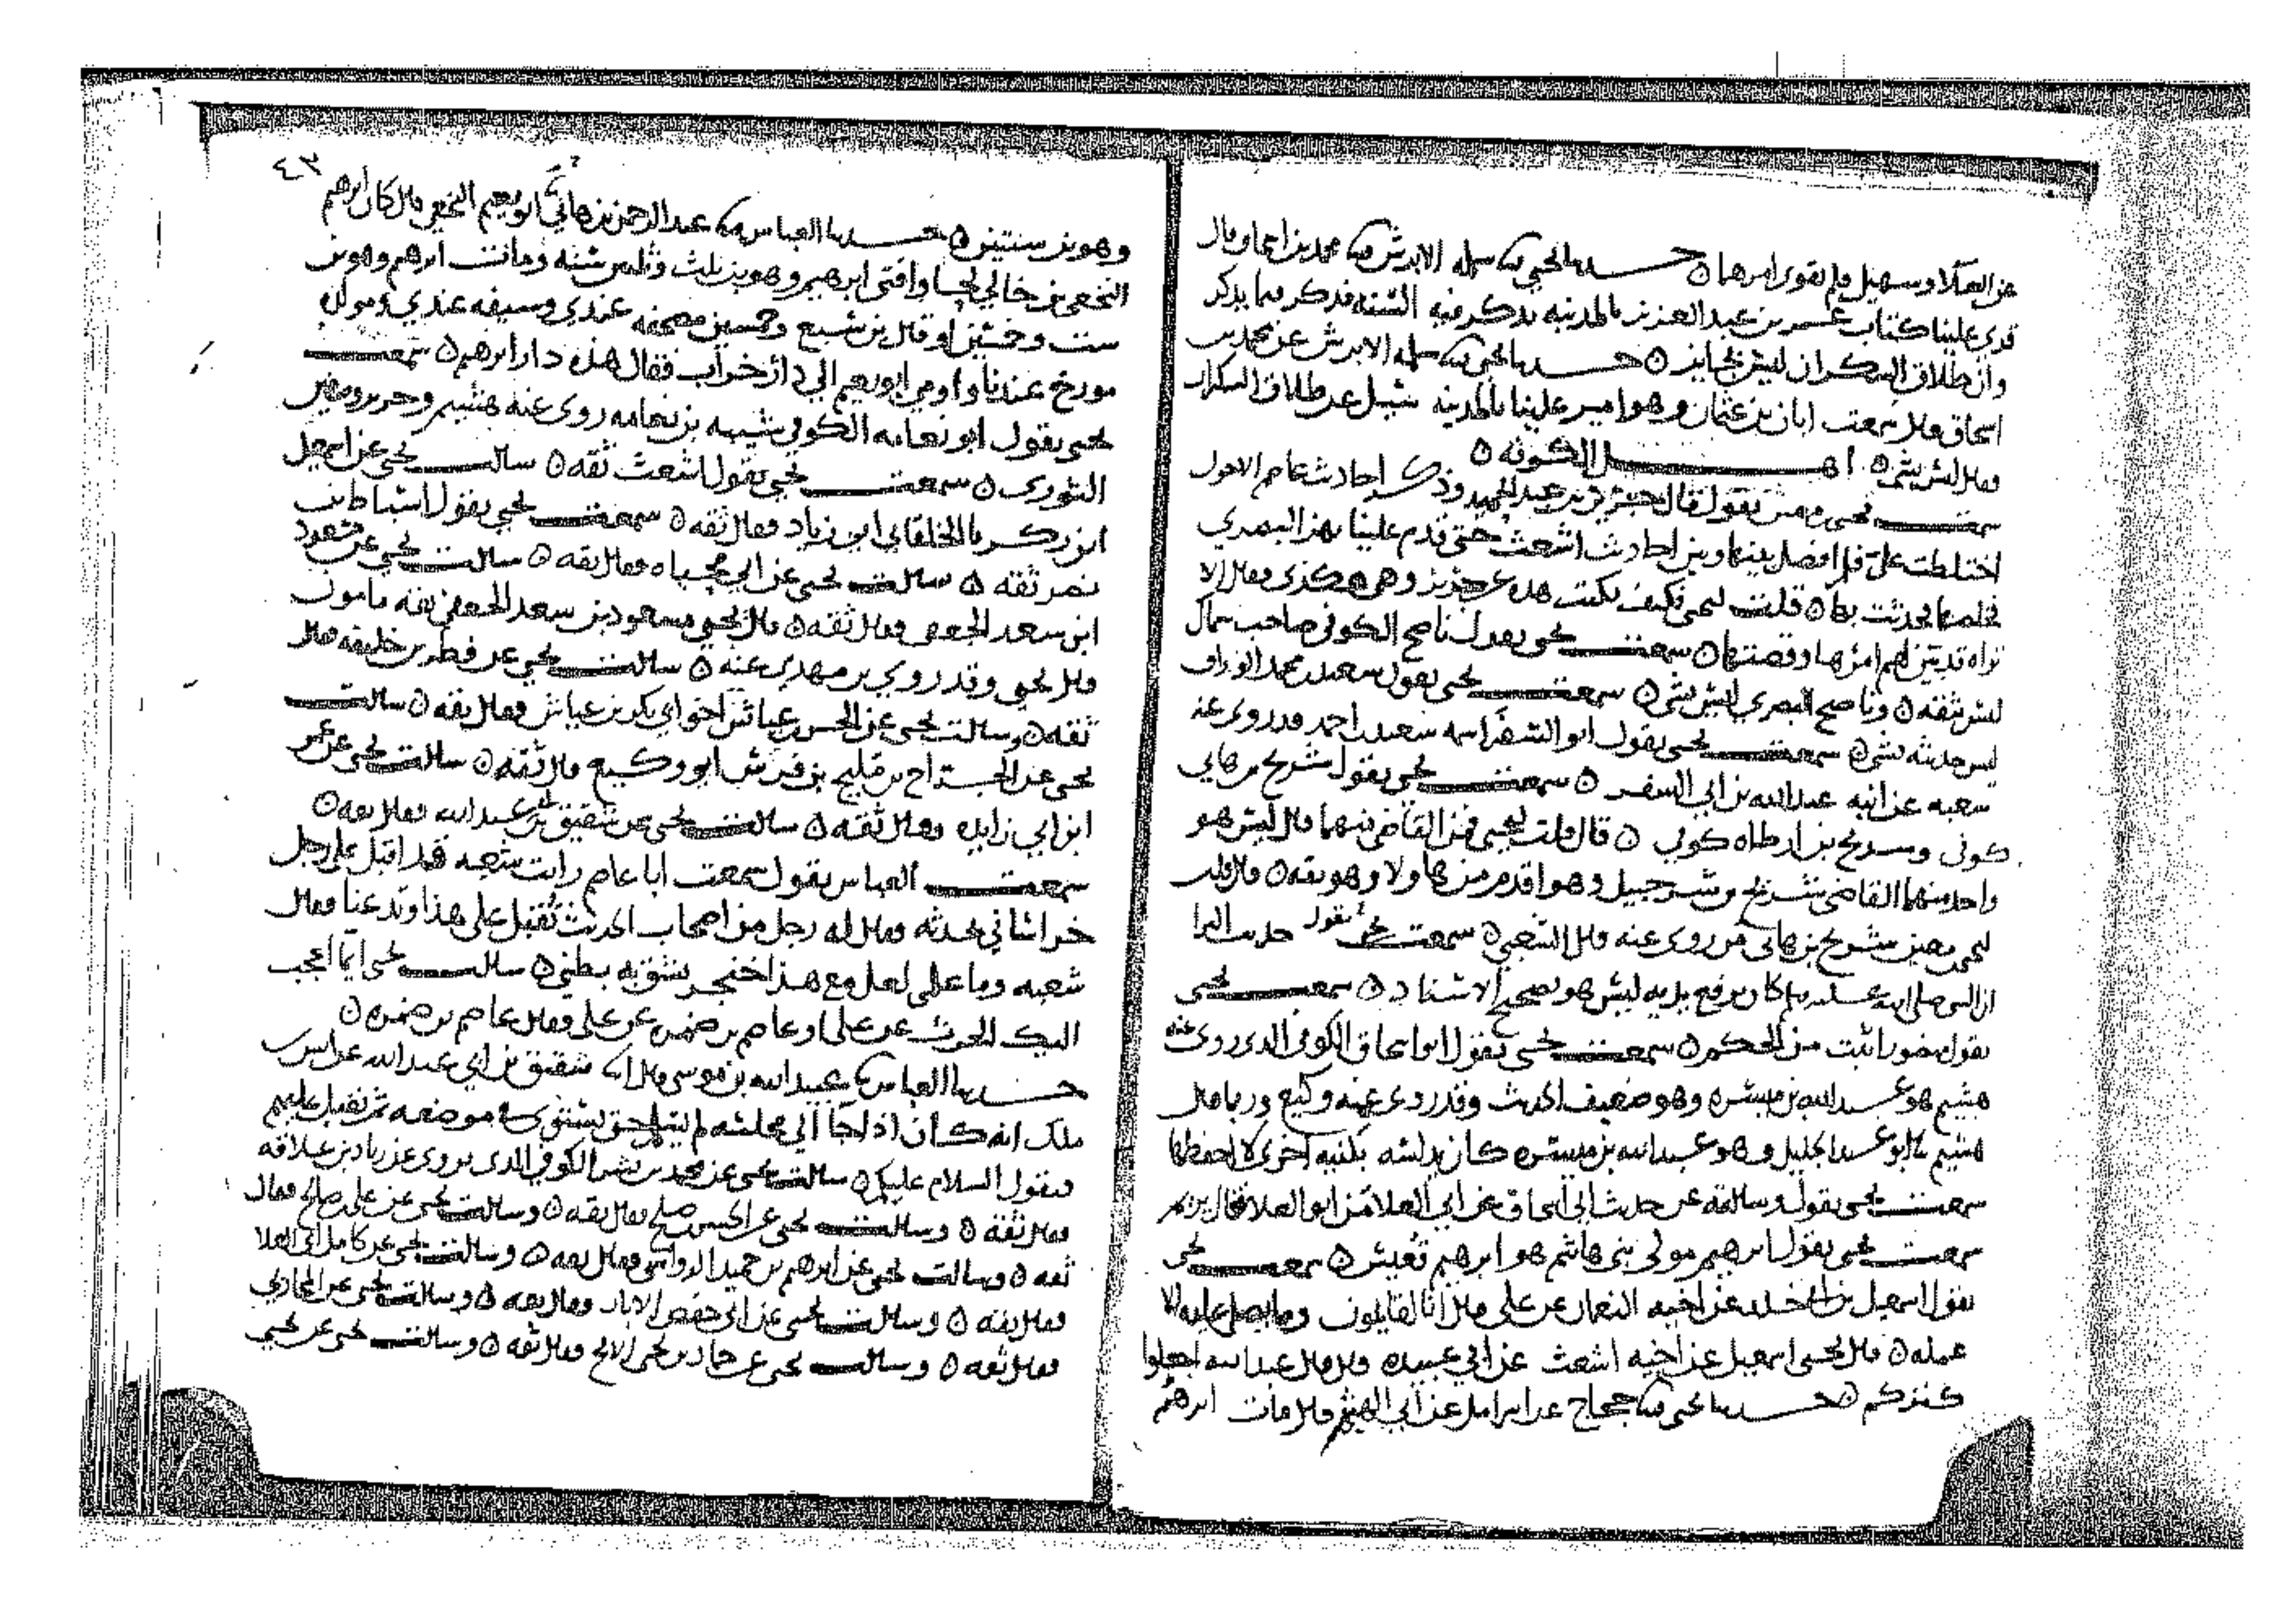 عن العلا وسهيل فلم يقوي امرهما ٥ حدثنا يحيى نا سلمه الابرش نا محمد بن اسحاق قال
قرئ علينا كتاب عمر بن عبد العزيز بالمدينه يذكر فيه السنه فذكر فيما يذكر
وان طلاق السكران ليس بجايز ٥ حدثنا يحيى نا سلمه الابرش عن محمد بن
اسحاق قال سمعت ابان بن عثمان وهو امير علينا بالمدينه سئل عن طلاق السكران
فقال ليس بشي ٥ اهل الكوفه ٥
سمعت يحيى بن معين يقول قال جرير بن عبد الحميد وذكر احاديث عاصم الاحول
اختلطت علي فلم افصل بينها وبين احاديث اشعث حتى قدم علينا بهز البصري
فخلصها فحدثت بها ٥ قلت ليحيى فكيف تكتب هذه عن جرير وهي هكذى فقال الا
تراه قد بين لهم امرها وقصتها ٥ سمعت يحيى يقول ناصح الكوفي صاحب سماك
ليس بثقه ٥ وناصح البصري ليس بشي ٥ سمعت يحيى يقول سعيد بن محمد الوراق
ليس حديثه بشي ٥ سمعت يحيى يقول ابو السفر اسمه سعيد بن احمد قد روى عنه
شعبه عن ابنه عبد الله بن ابي السفر ٥ سمعت يحيى يقول شريح بن هاني
كوفي وشريح بن ارطاه كوفي ٥ قال قلت ليحيى فمن القاضي منهما قال ليس هو
واحد منهما القاضي شريح بن شرحبيل وهو اقدم من هاولا وهو ثقه ٥ قال قلت
ليحيى بن معين شريح بن هاني من روى عنه قال الشعبي ٥ سمعت يحيى يقول حديث البرا
ان النبي صلى الله عليه وسلم كان يرفع يديه ليس هو بصحيح الاسناد ٥ سمعت يحيى
يقول منصور اثبت من الحكم ٥ سمعت يحيى يقول ابو اسحاق الكوفي الذي روى عنه
هشيم هو عبد الله بن ميسره وهو ضعيف الحديث وقد روى عنه وكيع وربما قال
هشيم نا ابو عبد الجليل وهو عبد الله بن ميسره كان يدلسه بكنيه اخرى لا احفظها
سمعت يحيى يقول وسالته عن حديث ابي اسحاق عن ابي العلا من ابو العلا فقال
سمعت يحيى يقول ابرهيم مولى بني هاشم هو ابرهيم قعيس ٥ سمعت يحيى
يقول اسمعيل بن ابي خلد عن اخيه النعمان عن علي قال انا لقايلون وما يصلى عليه الا
عمله ٥ قال يحيى اسمعيل عن اخيه اشعث عن ابي عبيده قال قال عبد الله اجعلوا
كنزكم ٥ حدثنا يحيى نا حجاج عن اسرايل عن ابي الهيثم قال مات ابرهيم
٤٣
وهو بن ستين ٥ حدثنا العباس نا عبد الرحمن بن هاني ابو نعيم النخعي قال كان ابرهيم
النخعي بن خالي لحا وافتى ابرهيم وهو بن ثلث وثلثين سنه ومات ابرهيم وهو بن
ست وخمسين او قال بن سبع وخمسين مصحفه عندي وسيفه عندي وموته
مورخ عندنا واومى ابو نعيم الى دار خراب فقال هذه دار ابرهيم ٥ سمعت
يحيى يقول ابو نعامه الكوفي شيبه بن نعامه روى عنه هشيم وجرير
الثوري ٥ سمعت يحيى يقول اشعث ثقه ٥ سالت يحيى عن اسمعيل
ابن زكريا الخلقاني ابو زياد فقال ثقه ٥ سمعت يحيى يقول اسباط بن
نصر ثقه ٥ سالت يحيى عن ابي محياه فقال ثقه ٥ سالت يحيى عن مسعود
ابن سعد الجعفي فقال ثقه ٥ قال يحيى ومسعود بن سعد الجعفي ثقه مامون
قال يحيى وقد روى بن مهدي عنه ٥ سالت يحيى عن فطر بن خليفه فقال
ثقه ٥ وسالت يحيى عن الحسن بن عياش اخو ابي بكر بن عياش فقال ثقه ٥ سالت
يحيى عن الجراح بن مليح بن فرس ابو وكيع قال ثقه ٥ سالت يحيى عن عمر
ابن ابي زايده فقال ثقه ٥ سالت يحيى عن شقيق بن عبد الله فقال ثقه ٥
سمعت العباس يقول سمعت ابا عاصم رايت شعبه قد اقبل على رجل
خراساني يحدثه فقال له رجل من اصحاب الحديث تقبل على هذا وتدعنا فقال
شعبه وما علي لعل مع هذا خنجر يشق به بطني ٥ سالت يحيى ايما اعجب
اليك الحرث عن علي او عاصم بن ضمره عن علي فقال عاصم بن ضمره ٥
حدثنا العباس نا عبيد الله بن موسى قال انا شقيق بن ابي عبد الله عن انس بن
ملك انه كان اذا جا الى مجلسه لم يسلم حتى يستوي في موضعه ثم يقبل عليهم
فيقول السلام عليكم ٥ سالت يحيى عن محمد بن بشر الكوفي الذي يروي عن زياد بن علاقه
فقال ثقه ٥ وسالت يحيى عن الحسن بن صالح فقال ثقه ٥ وسالت يحيى عن علي بن صالح فقال
ثقه ٥ وسالت يحيى عن ابرهيم بن حميد الرواسي فقال ثقه ٥ وسالت يحيى عن كامل ابي العلا
فقال ثقه ٥ وسالت يحيى عن ابي حفص الابار فقال ثقه ٥ وسالت يحيى عن المحاربي
فقال ثقه ٥ وسالت يحيى عن حماد بن يحيى الابح فقال ثقه ٥ وسالت يحيى عن يحيى